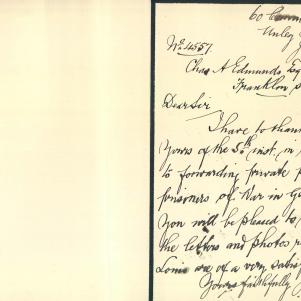 60 Comm
Unley
No. 4557.
Chas A Edmunds Es
Franklin S
Dear Sir
I have to than
yours of the 5th inst. in
to forwarding private p
prisoners of War in G
You will be pleased to
the letters and photos
Louis are of a very satis
Yours faithfully